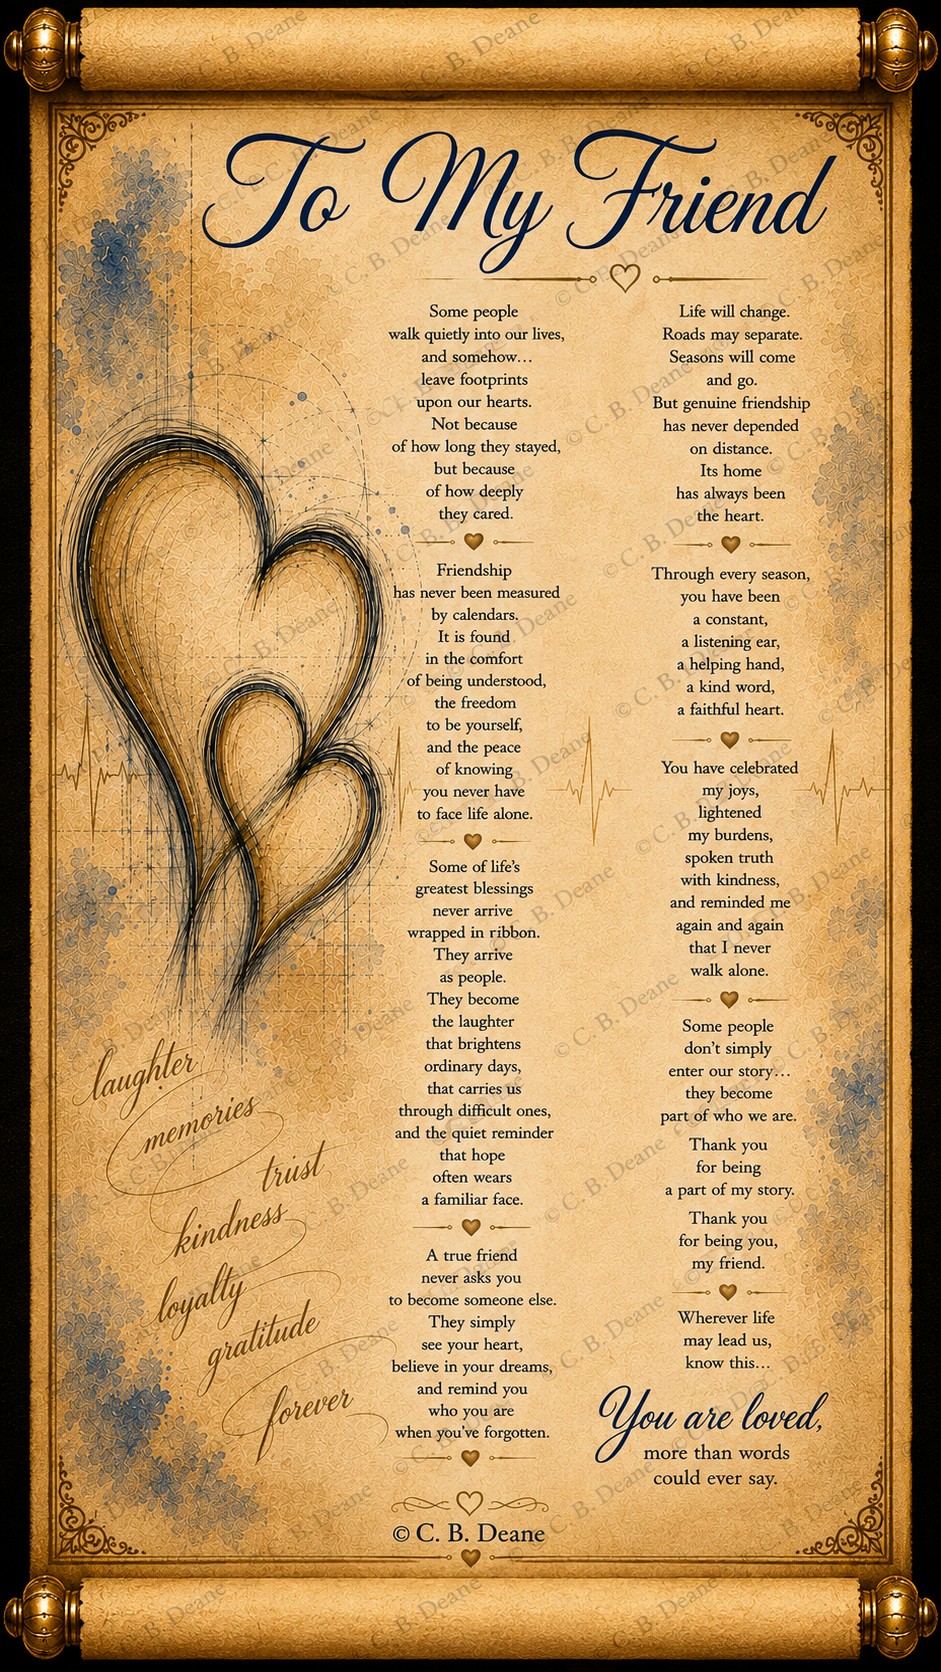 To My Friend
Some people
walk quietly into our lives,
and somehow...
leave footprints
upon our hearts.
Not because
of how long they stayed,
but because
of how deeply
they cared.
Friendship
has never been measured
by calendars.
It is found
in the comfort
of being understood,
the freedom
to be yourself,
and the peace
of knowing
you never have
to face life alone.
Some of life's
greatest blessings
never arrive
wrapped in ribbon.
They arrive
as people.
They become
the laughter
that brightens
ordinary days,
that carries us
through difficult ones,
and the quiet reminder
that hope
often wears
a familiar face.
A true friend
never asks you
to become someone else.
They simply
see your heart,
believe in your dreams,
and remind you
who you are
when you've forgotten.
Life will change.
Roads may separate.
Seasons will come
and go.
But genuine friendship
has never depended
on distance.
Its home
has always been
the heart.
Through every season,
you have been
a constant,
a listening ear,
a helping hand,
a kind word,
a faithful heart.
You have celebrated
my joys,
lightened
my burdens,
spoken truth
with kindness,
and reminded me
again and again
that I never
walk alone.
Some people
don't simply
enter our story...
they become
part of who we are.
Thank you
for being
a part of my story.
Thank you
for being you,
my friend.
Wherever life
may lead us,
know this...
You are loved,
more than words
could ever say.
laughter
memories
trust
kindness
loyalty
gratitude
forever
© C. B. Deane